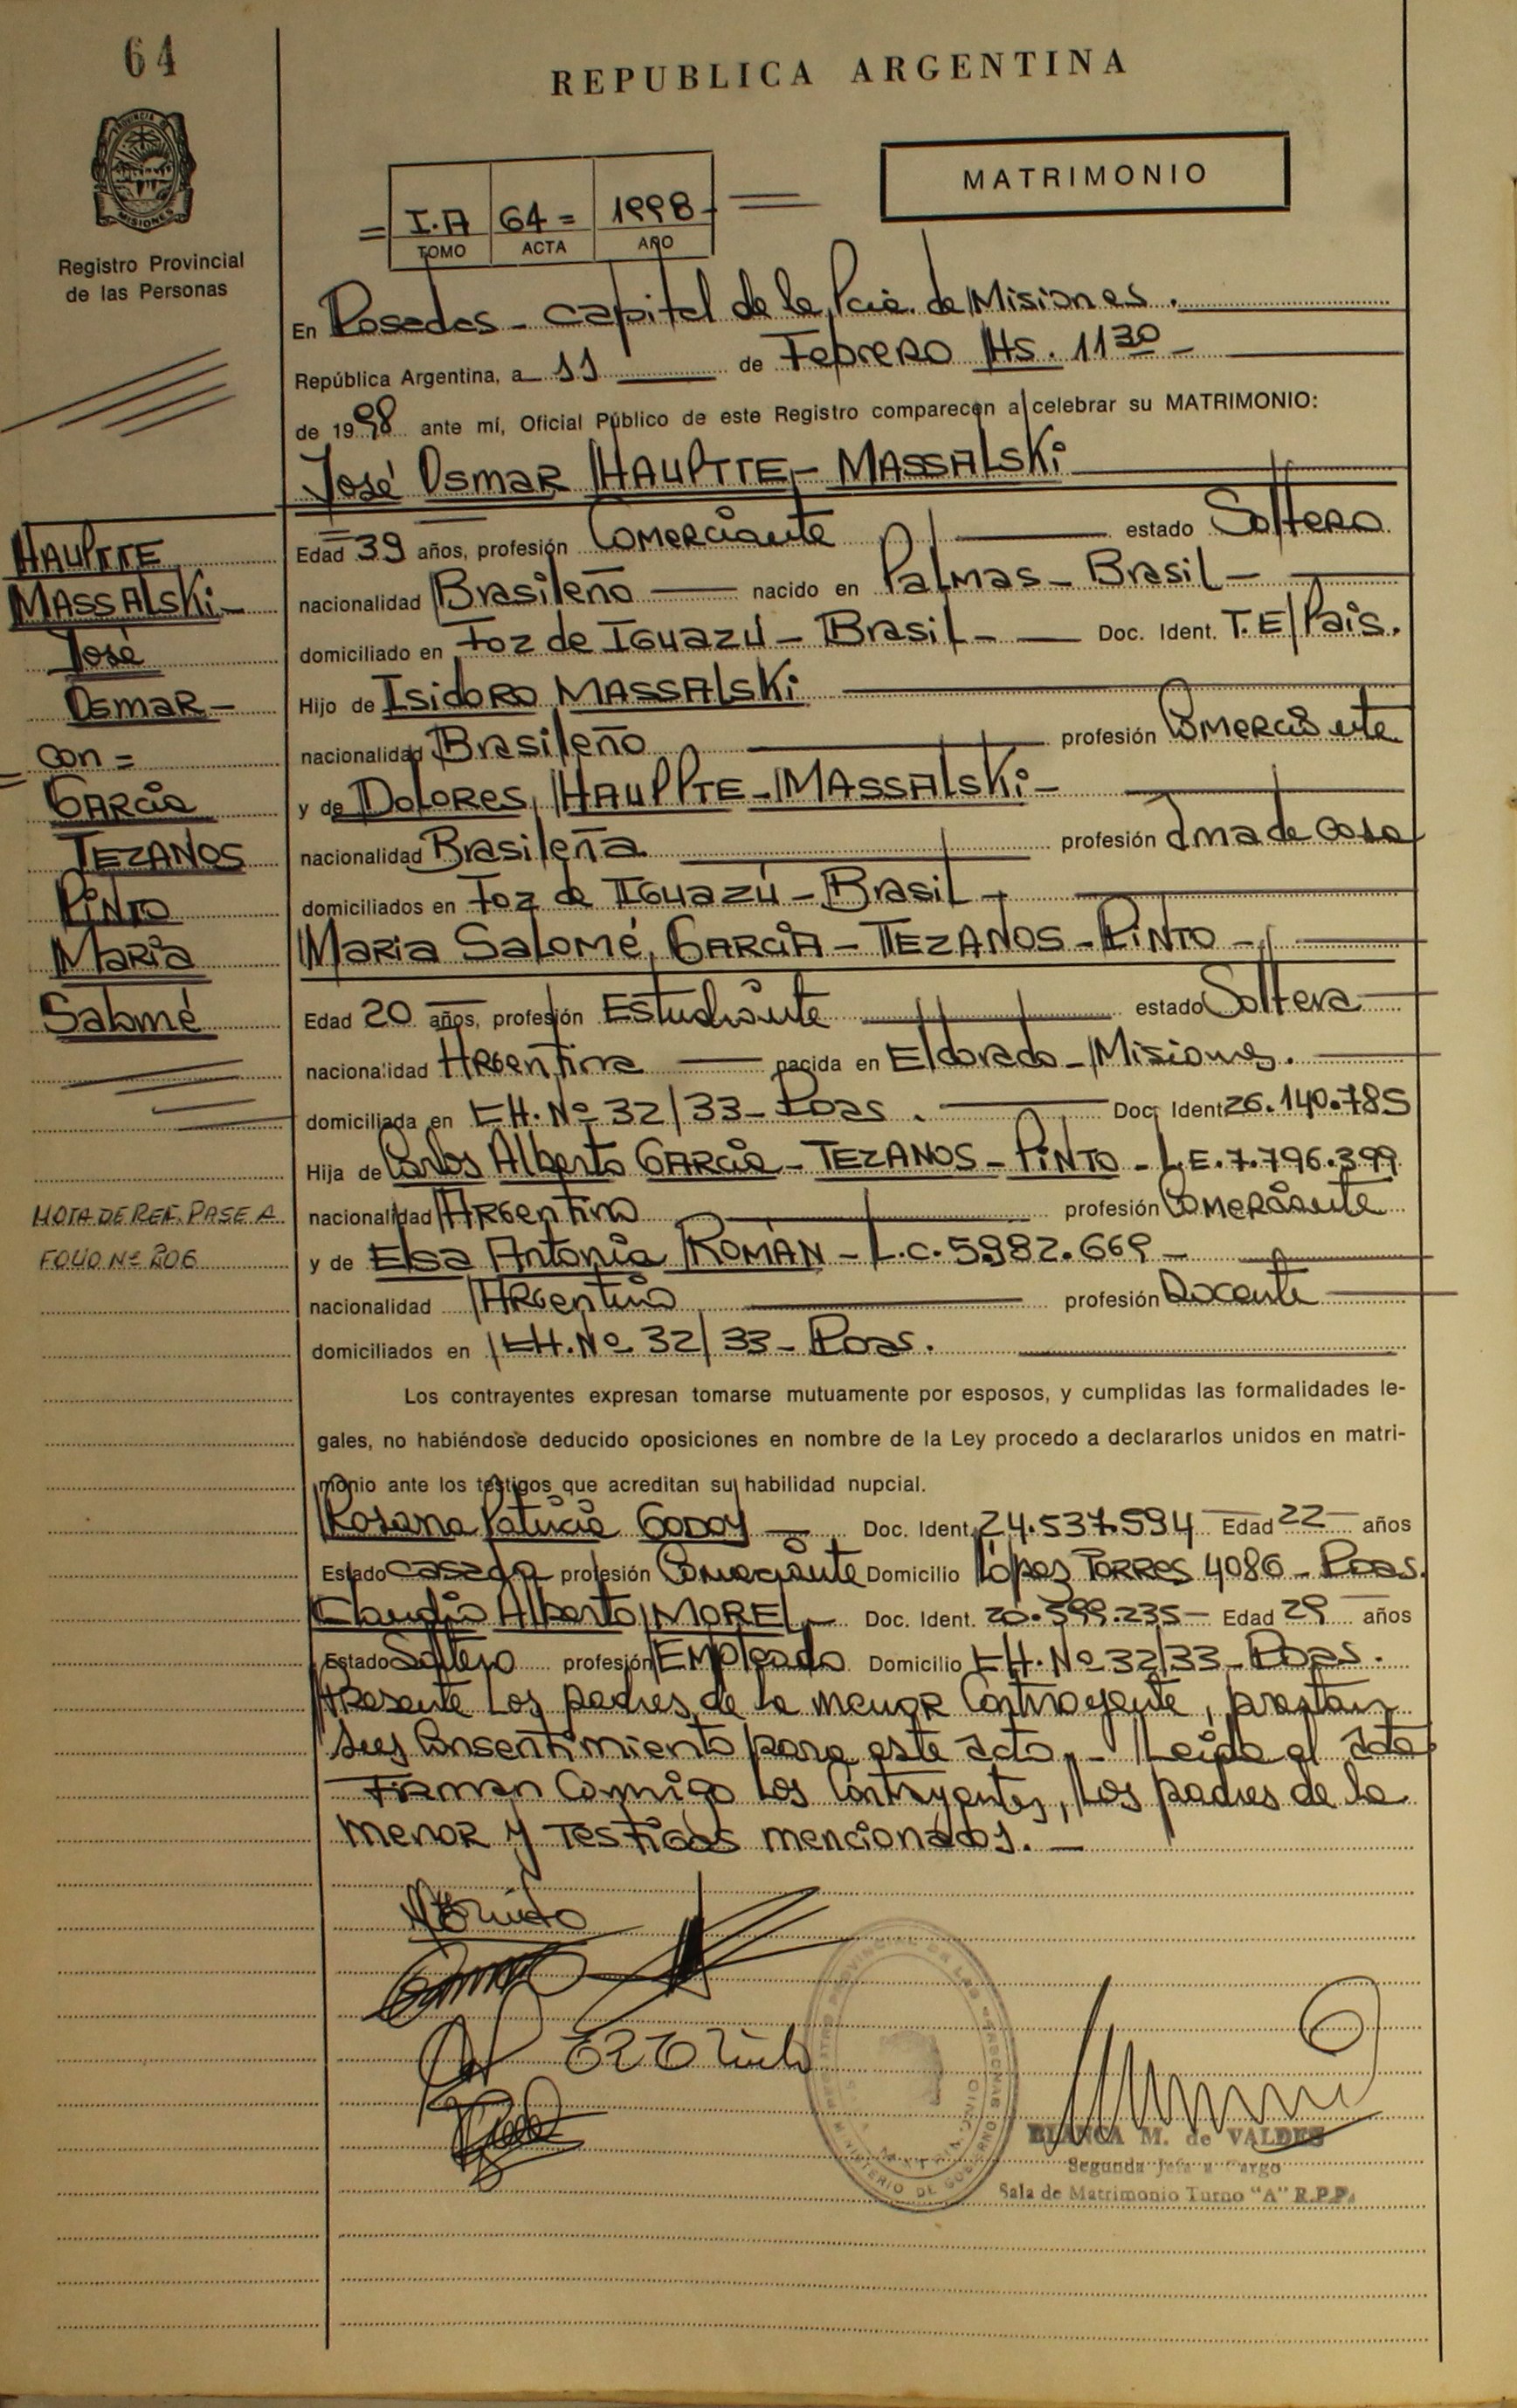 64
REPUBLICA ARGENTINA
MATRIMONIO
I.A 64= 1998-
TOMO ACTA AÑO
PROVINCIA DE
MISIONES
Registro Provincial
de las Personas
En Posadas - capital de la Pcia. de Misiones.
República Argentina, a 11 de Febrero Hs. 1130 -
de 1998 ante mí, Oficial Público de este Registro comparecen a celebrar su MATRIMONIO:
José Osmar HAUPTTE - MASSALSKi
HAUPTTE
MASSALSKi -
José
Osmar -
con =
GARCía
TEZANOS
PiNTO
MARía
Salomé
Edad 39 años, profesión Comerciante estado Soltero
nacionalidad Brasileño nacido en Palmas - Brasil -
domiciliado en Foz de Iguazú - Brasil - Doc. Ident. T.E/País.
Hijo de Isidoro MASSALSKi
nacionalidad Brasileño profesión Comerciante
y de Dolores, HAUPTTE - MASSALSKi -
nacionalidad Brasileña profesión Ama de casa
domiciliados en Foz de Iguazú - Brasil -
María Salomé, GARCíA - TEZANOS - PiNTO -
Edad 20 años, profesión Estudiante estado Soltera
nacionalidad Argentina nacida en Eldorado - Misiones.
domiciliada en CH. Nº 32/33 - Pdas. Doc. Ident. 26.140.785
Hija de Carlos Alberto GARCía - TEZANOS - PiNTO - L.E. 7.796.399
nacionalidad Argentino profesión Comerciante
y de Elsa Antonia ROMÁN - L.C. 5.982.669 -
nacionalidad Argentina profesión Docente
domiciliados en CH. Nº 32/33 - Pdas.
NOTA DE REF. PASE A
FOLIO Nº 206
Los contrayentes expresan tomarse mutuamente por esposos, y cumplidas las formalidades le-
gales, no habiéndose deducido oposiciones en nombre de la Ley procedo a declararlos unidos en matri-
monio ante los testigos que acreditan su habilidad nupcial.
Rosana Patricia GODOY Doc. Ident. 24.537.594 Edad 22 años
Estado casada profesión Comerciante Domicilio López Torres 4086 - Pdas.
Claudio Alberto MOREL - Doc. Ident. 20.399.235 - Edad 29 años
Estado Soltero profesión Empleado Domicilio CH. Nº 32/33 - Pdas.
Presente los padres de la menor Contrayente, prestan
sus Consentimiento para este acto. - Leída el acta
Firman Conmigo los Contrayentes, los padres de la
menor y Testigos mencionados. -
BLANCA M. de VALDES
Segunda Jefa a Cargo
Sala de Matrimonio Turno "A" R.P.P.